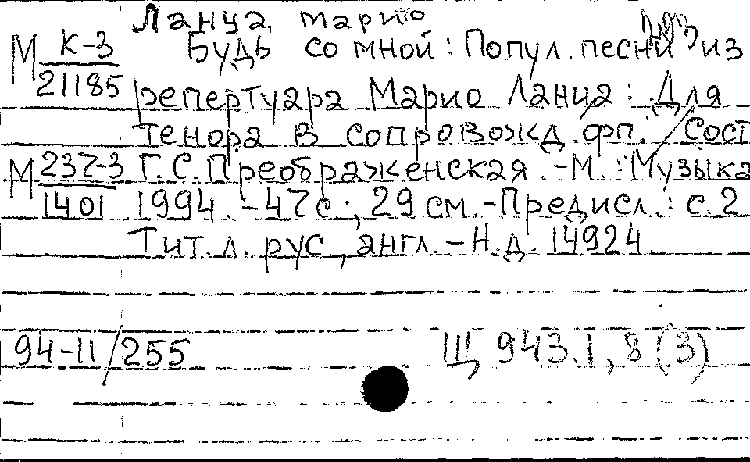 Ланца, Марио
М К-3 Будь со мной: Попул. песни из
21185 репертуара Марио Ланца: Для
тенора в сопровожд. фп. / Сост.
М 237-3 Г.С. Преображенская. - М.: Музыка
1401 1994. - 47 с.; 29 см. - Предисл.: с. 2
Тит. л. рус., англ. - Н.д. 14924
94-11/255 Щ 943.1,8(3)